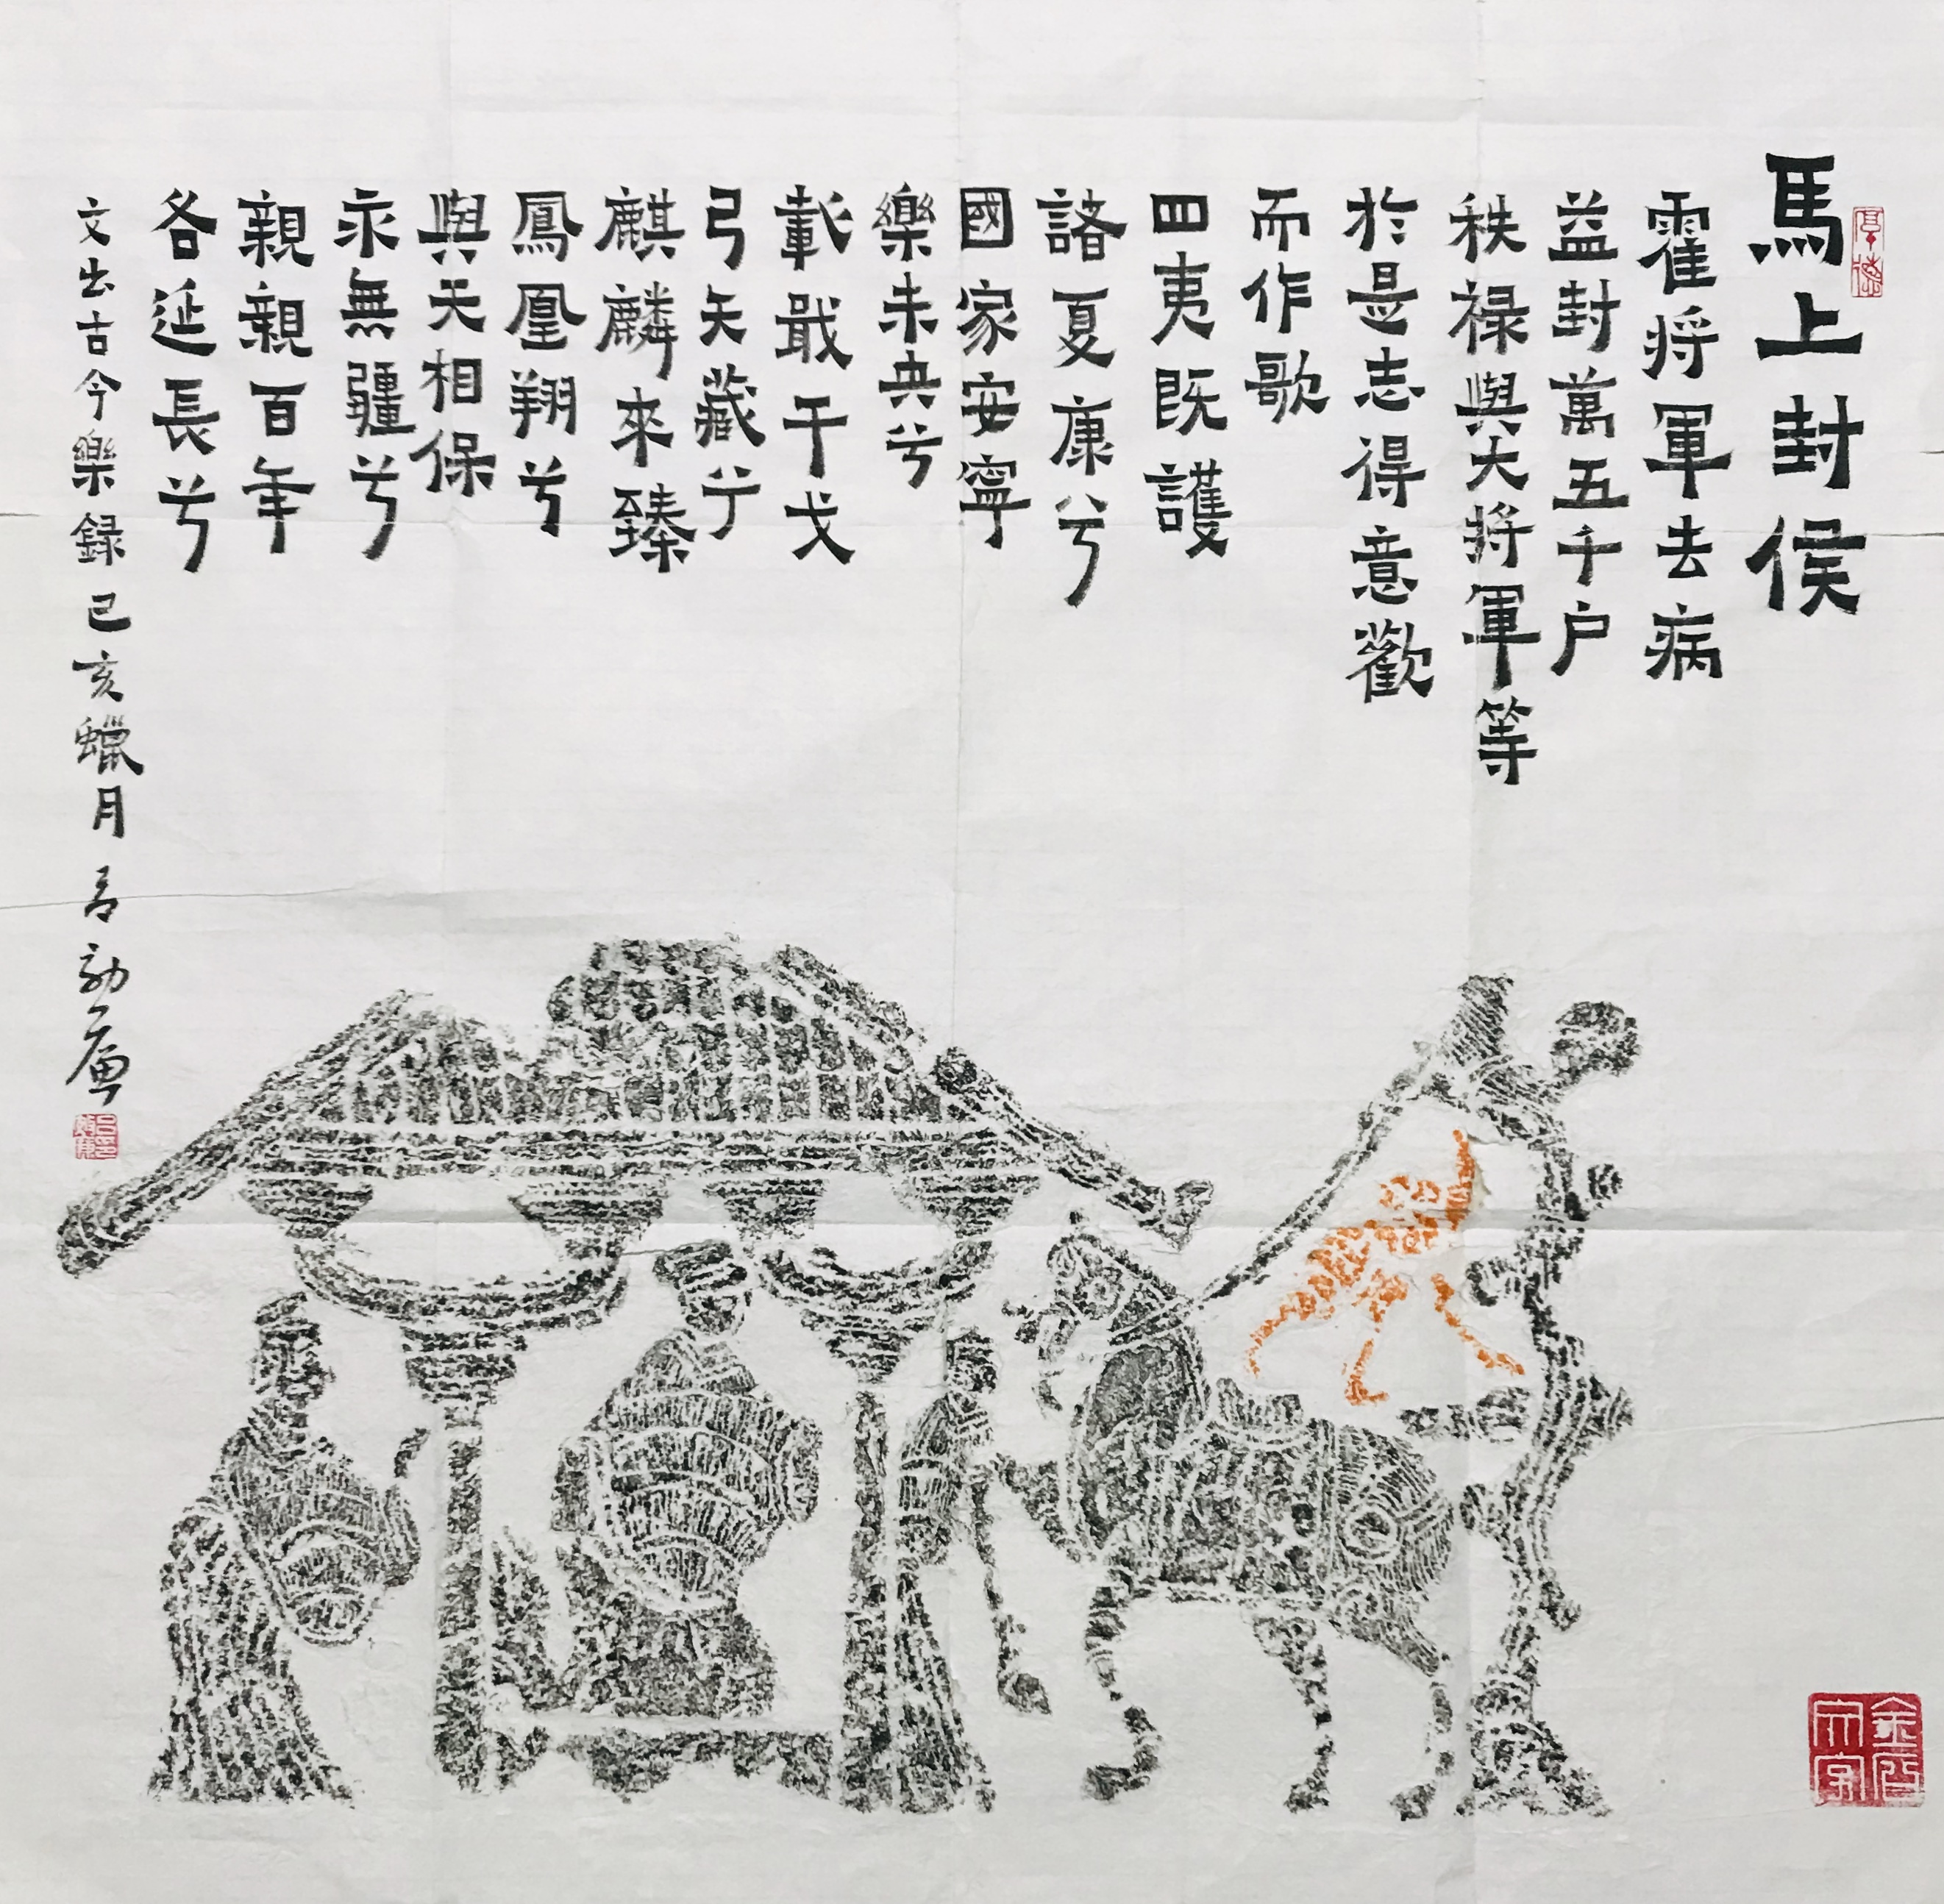 馬上封侯
霍将軍去病
益封萬五千户
秩禄與大将軍等
於是志得意歡
而作歌
四夷既護
諮夏康兮
國家安寧
樂未央兮
載戢干戈
弓矢藏兮
麒麟来臻
鳳凰翔兮
與天相保
永無疆兮
親親百年
各延長兮
文出古今樂録己亥蠟月吕
厚德
金石文字